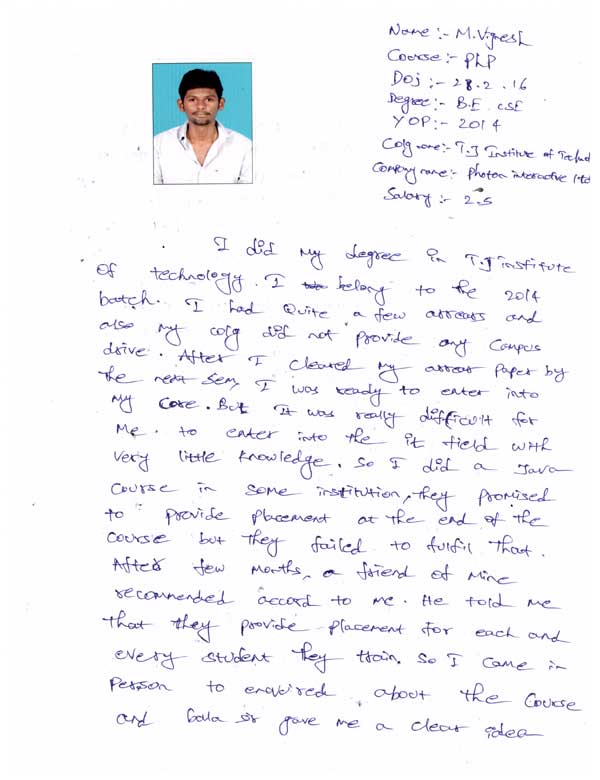 Name :- M.Vignesh
Course :- PLP
DOJ :- 28.2.16
Degree :- B.E. CSE
YOP :- 2014
Colg name :- T.J Institute of Technol
Company name :- Photon interactive ltd
Salary :- 2.5
I did my degree in T.J institute
of technology. I belong to the 2014
batch. I had Quite a few arrears and
also my colg did not provide any campus
drive. After I cleared my arrear paper by
the next sem, I was ready to enter into
my core. But It was really difficult for
me. to enter into the it field with
very little knowledge. So I did a Java
course in some institution, they promised
to provide placement at the end of the
course but they failed to fulfil that.
After few months, a friend of mine
recommended accord to me. He told me
that they provide placement for each and
every student they train. So I came in
person to enquired about the course
and bala sir gave me a clear idea